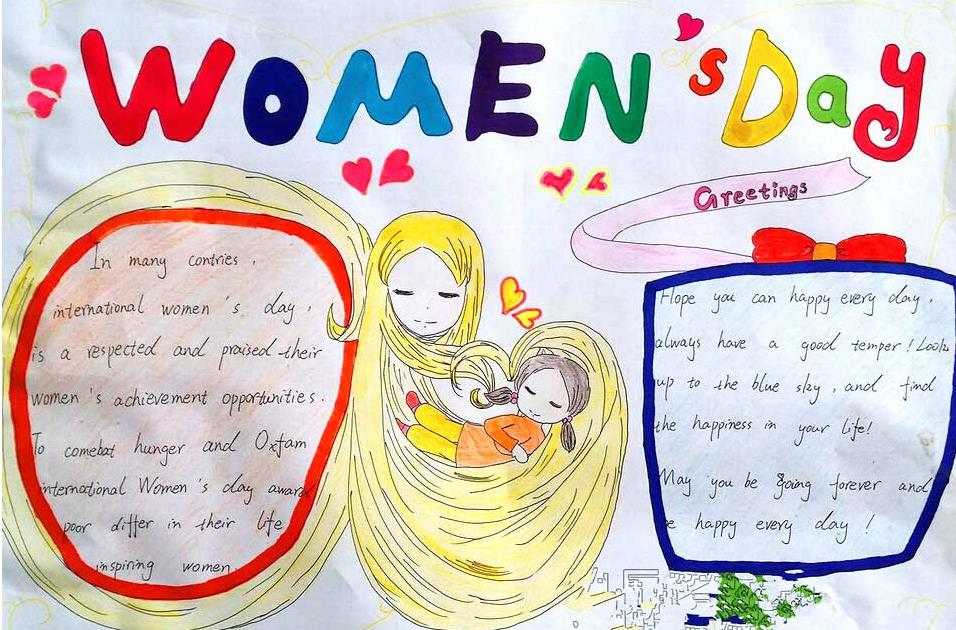 WOMEN'S Day
In many contries,
international women's day,
is a respected and praised their
women's achievement opportunities.
To comebat hunger and Oxfam
international Women's day award
poor differ in their life
inspiring women.
Greetings
Hope you can happy every day,
always have a good temper! Look
up to the blue sky, and find
the happiness in your life!
May you be going forever and
be happy every day!